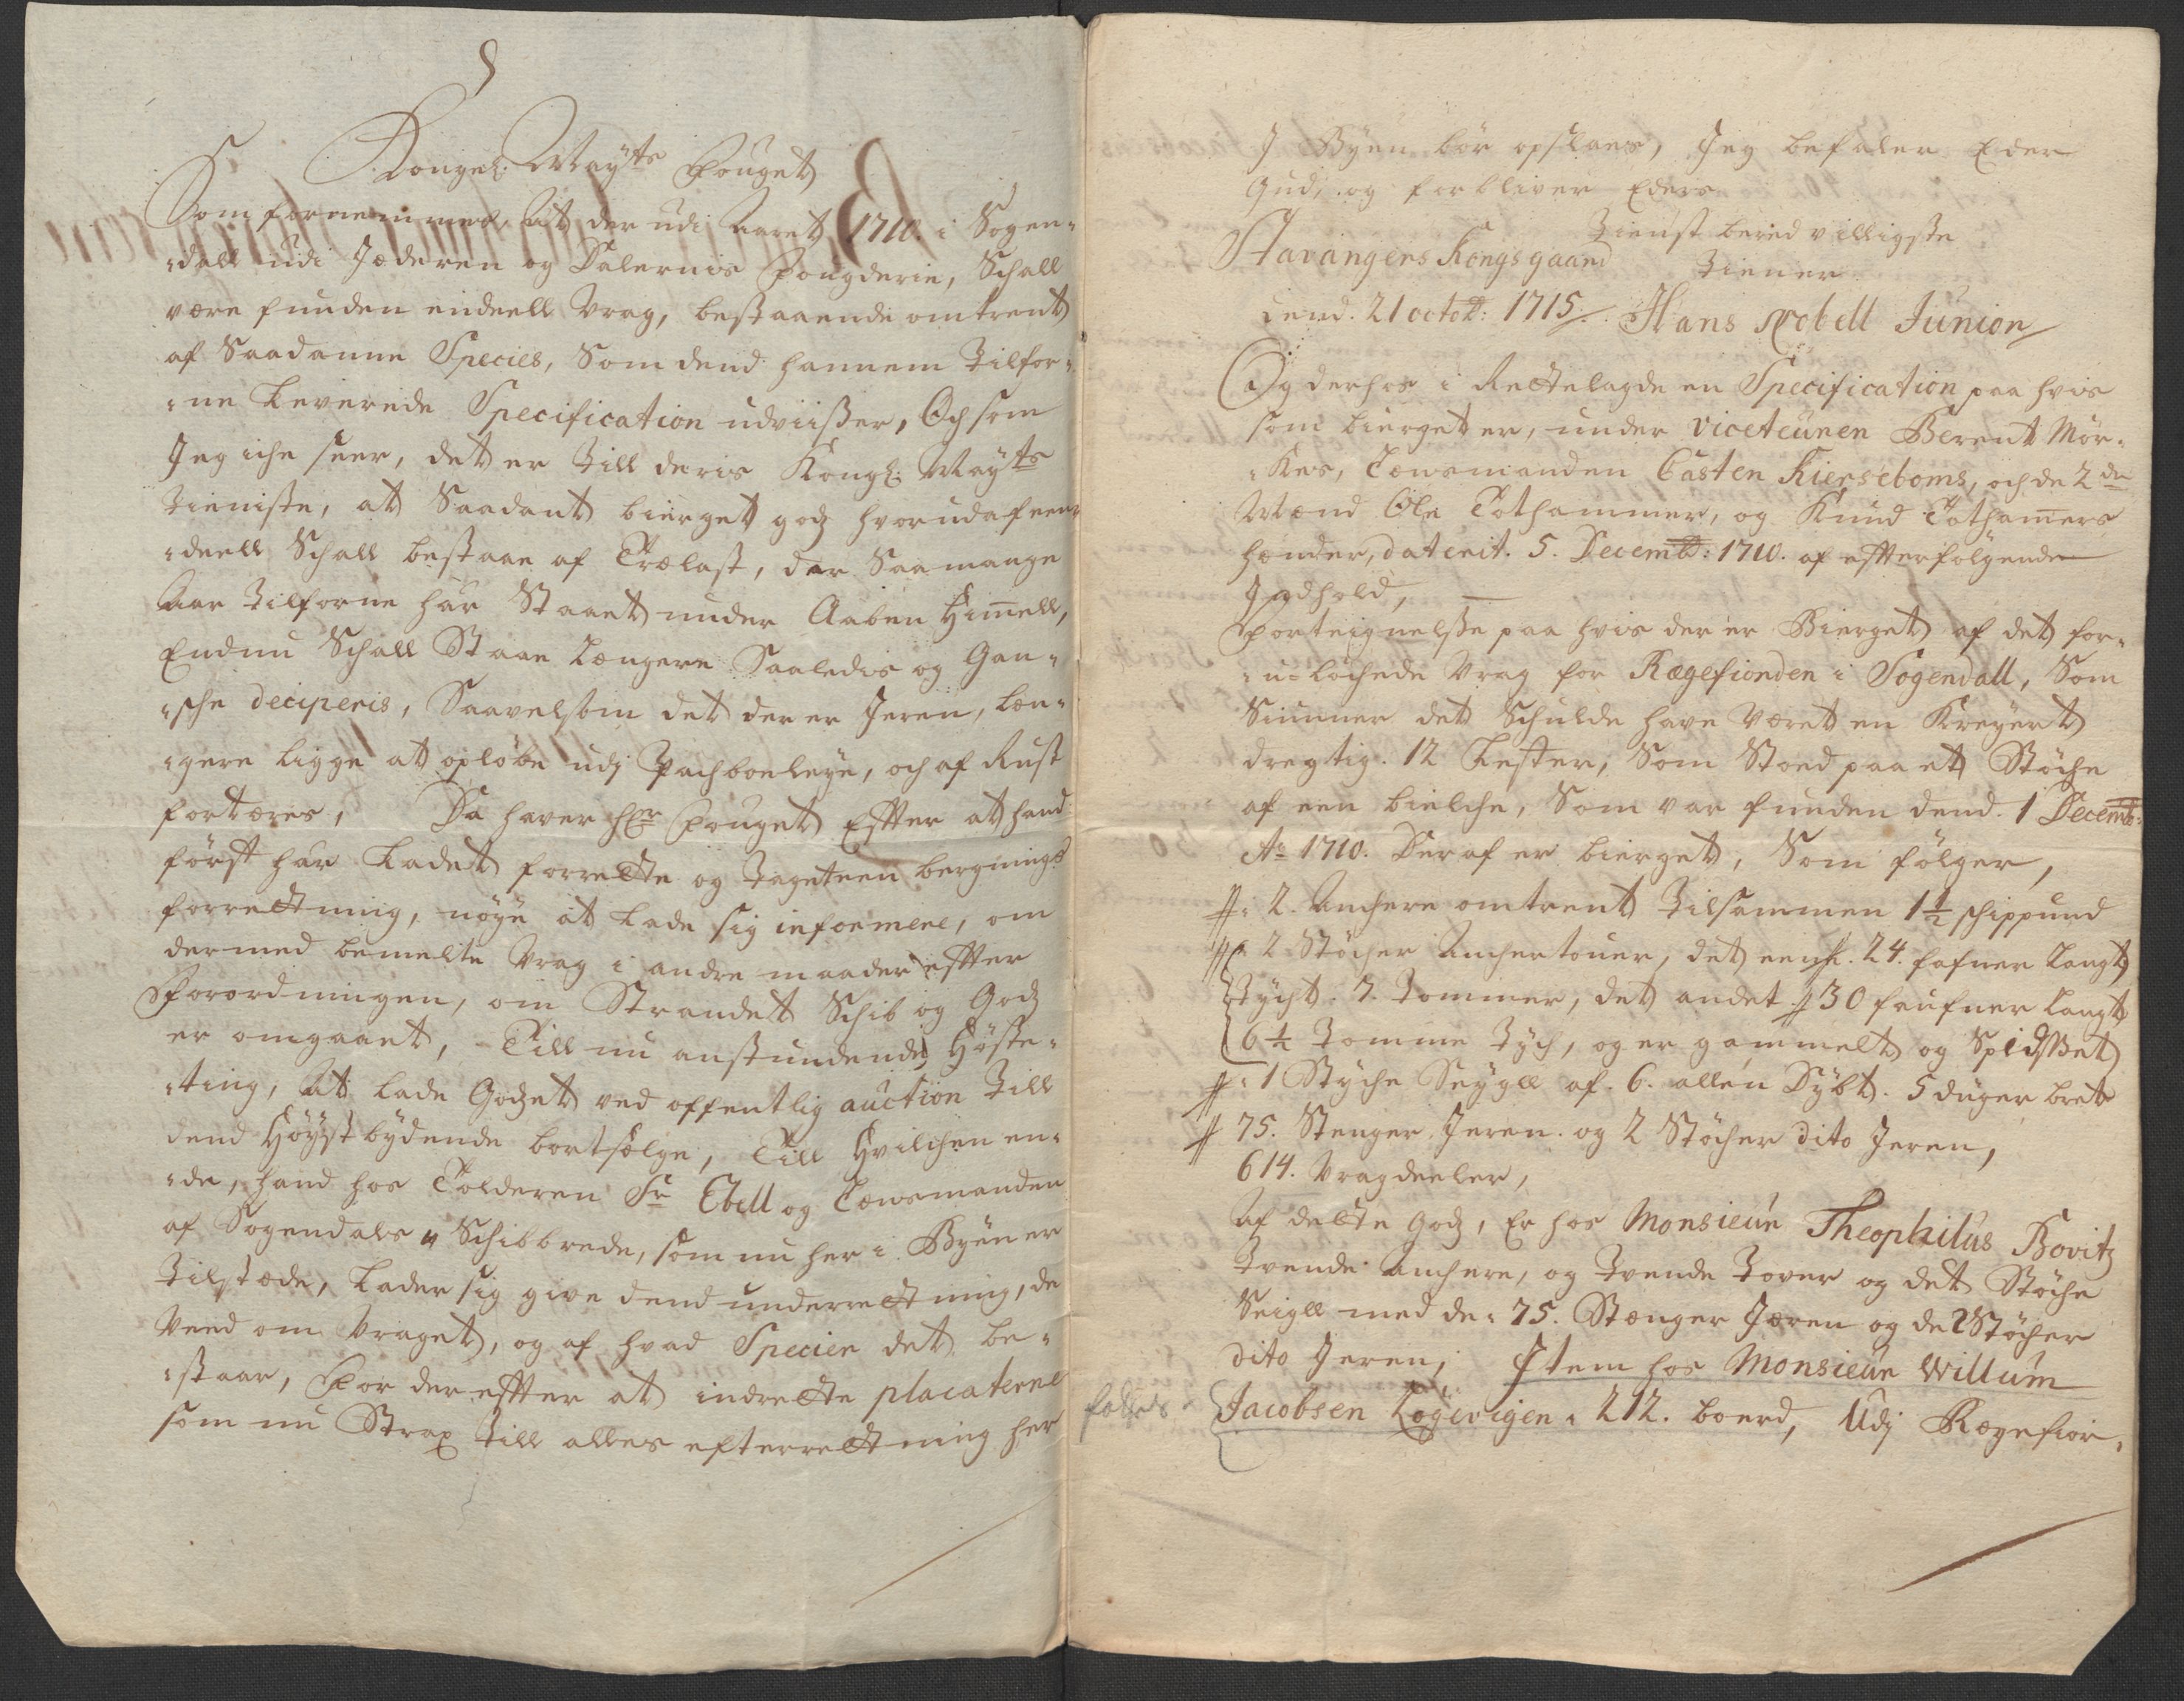 Kongel: Mayts Fouget
Som fornemmes, at der udi Aaret 1710. i Sogen-
dall udi Jæderen og Dalernis Fougderie, Schall
være funden endeell Vrag, bestaaende omtrent
af Saadanne Species, Som dend hannem Tilfor-
ne Leverede Specification udviisser, Och som
Jeg iche seer, det er Till deris Kongl: Mayts
Tieniste, at Saadant bierget godz hvorudaf een
deell Schall bestaae af Trælast, der Saa mange
Aar Tilforne har Staaet under Aaben Himmell,
Endnu Schall Staae Længere Saaledis og Gan-
sche deciperis, Saavelsom det der er Jeren, læn-
gere ligge at opløbe udj Pachboeleye, och af Rust
fortæres, Da haver Hr Fouget Efter at hand
først har Ladet forrette og Tageteen bergnings
forretning, nøye at Lade sig informere, om
dermed bemelte Vrag i andre maader efter
Forordningen, om Strandet Schib og Godz
er omgaaet, Till nu anstundende Høste-
ting, At Lade Godzet ved offentlig auction Till
dend Høystbydende bortsælge, Till Hvilchen en-
de, hand hos Tolderen Sr Ebell og Lensmanden
af Sogendals Schibbrede, som nu her i Byen er
Tilstæde, Lader sig give dend underretning, de
Veed om Vraget, og af hvad Specier det be-
staar, For derefter at indrette placaterne
som nu Strax Till alles efterretning her
J Byen bør opslaes, Jeg befaler Eder
Gud, og forbliver Eders
Tienst beredvilligste
Stavangers Kongsgaard Tiener
dend. 21 octob: 1715. Hans Nobell Junior
Og derhos i Rettelagde en Specification paa hvis
som bierget er, under viceteüren Berent Mör-
kes, Lensmanden Casten Kierseboms, och de 2de
Mænd Ole Tothammer, og Knud Tothamers
hænder, daterit. 5. Decembr: 1710. af efterfølgende
Jndhold,
Forteignelse paa hvis der er Bierget af det for-
u-lochede Vrag for Rægefiorden i Sogendall, Som
Siunner det Schulde have Været en Kreyert
dregtig. 12 Lester, Som Stoed paa et Støche
af een bielche, Som var funden dend. 1 Decembr:
Ao 1710. Deraf er bierget, Som følger,
2. Anchere omtrent Tilsammen 1½ schippund
2 Støcher Anchertouer, det een. 24. fafner Langt
Tycht. 7. Tommer, det andet 30 faufner Langt
6½ Tomme Tych, og er gammelt og Splidsset
1 Styche Seygll af. 6. allen Dybt. 5 duger bret
75. Stenger Jeren. og 2 Støcher dito Jeren,
614. Vragdeeler,
Af dette Godz, Er hos Monsieur Theophilus Bovitz
Tvende Anchere, og Tvende Tover og det Støche
Seigll med de. 75. Stænger Jæren og de 2 Støcher
dito Jeren, Item hos Monsieur Willum
Jacobsen Løgevigen. 212. boerd, Udj Rægefior-